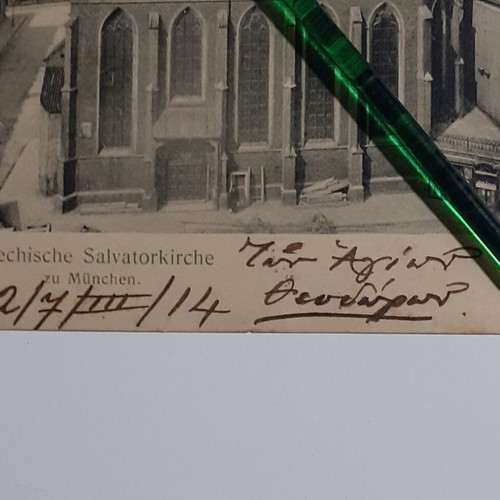 echische Salvatorkirche
zu München.
2/7/III/14
Τῶν Ἁγίων
Θεοδώρων